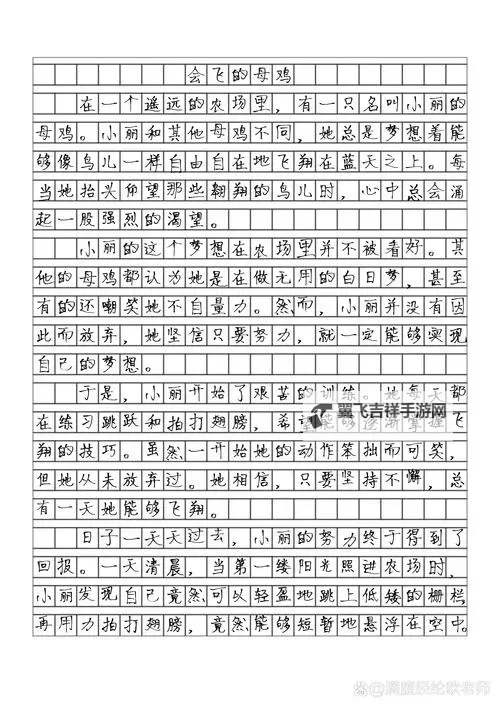 会飞的母鸡
在一个遥远的农场里，有一只名叫小丽的
母鸡。小丽和其他母鸡不同，她总是梦想着能
够像鸟儿一样自由自在地飞翔在蓝天之上。每
当她抬头仰望那些翱翔的鸟儿时，心中总会涌
起一股强烈的渴望。
小丽的这个梦想在农场里并不被看好。其
他的母鸡都认为她是在做无用的白日梦，甚至
有的还嘲笑她不自量力。然而，小丽并没有因
此而放弃，她坚信只要努力，就一定能够实现
自己的梦想。
于是，小丽开始了艰苦的训练。她每天都
在练习跳跃和拍打翅膀，希望能够逐渐掌握飞
翔的技巧。虽然一开始她的动作笨拙而可笑，
但她从未放弃过。她相信，只要坚持不懈，总
有一天她能够飞翔。
日子一天天过去，小丽的努力终于得到了
回报。一天清晨，当第一缕阳光照进农场时，
小丽发现自己竟然可以轻盈地跳上低矮的栅栏，
再用力拍打翅膀，竟然能够短暂地悬浮在空中。
翼飞吉祥手游网
@满腹经纶欧老师